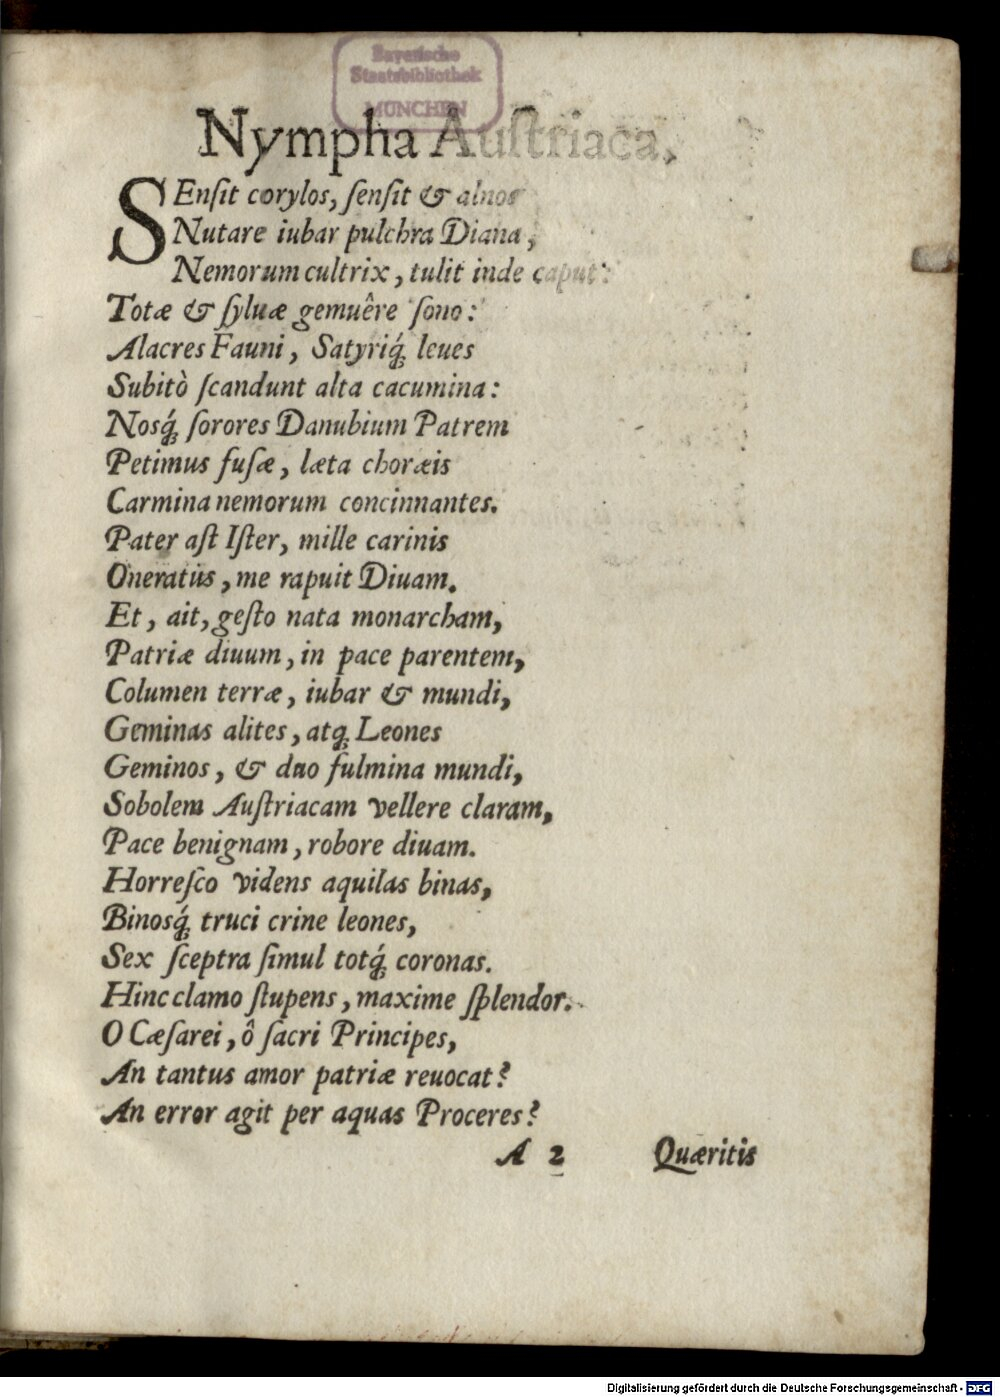 Bayerische
Staatsbibliothek
MÜNCHEN
Nympha Auſtriaca.
SEnſit corylos, ſenſit & alnos
Nutare iubar pulchra Diana,
Nemorum cultrix, tulit inde caput:
Totæ & ſyluæ gemuêre ſono:
Alacres Fauni, Satyriq́; leues
Subitò ſcandunt alta cacumina:
Nosq́; ſorores Danubium Patrem
Petimus fuſæ, læta choræis
Carmina nemorum concinnantes.
Pater aſt Iſter, mille carinis
Oneratus, me rapuit Diuam.
Et, ait, geſto nata monarcham,
Patriæ diuum, in pace parentem,
Columen terræ, iubar & mundi,
Geminas alites, atq; Leones
Geminos, & duo fulmina mundi,
Sobolem Auſtriacam vellere claram,
Pace benignam, robore diuam.
Horreſco videns aquilas binas,
Binosq́; truci crine leones,
Sex ſceptra ſimul totq́; coronas.
Hinc clamo ſtupens, maxime ſplendor.
O Cæſarei, ô ſacri Principes,
An tantus amor patriæ reuocat?
An error agit per aquas Proceres?
A 2 Quæritis
Digitalisierung gefördert durch die Deutsche Forschungsgemeinschaft - DFG